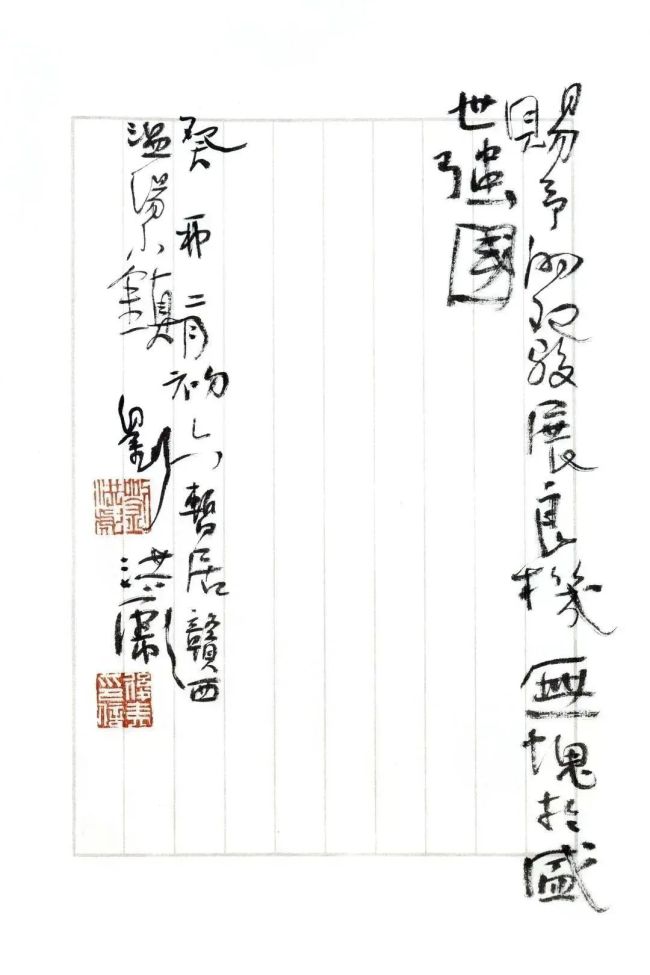 賜予的發展良機無愧於盛
世強國
癸卯二月初六暫居贛西
溫湯小鎮劉洪彪
劉洪彪